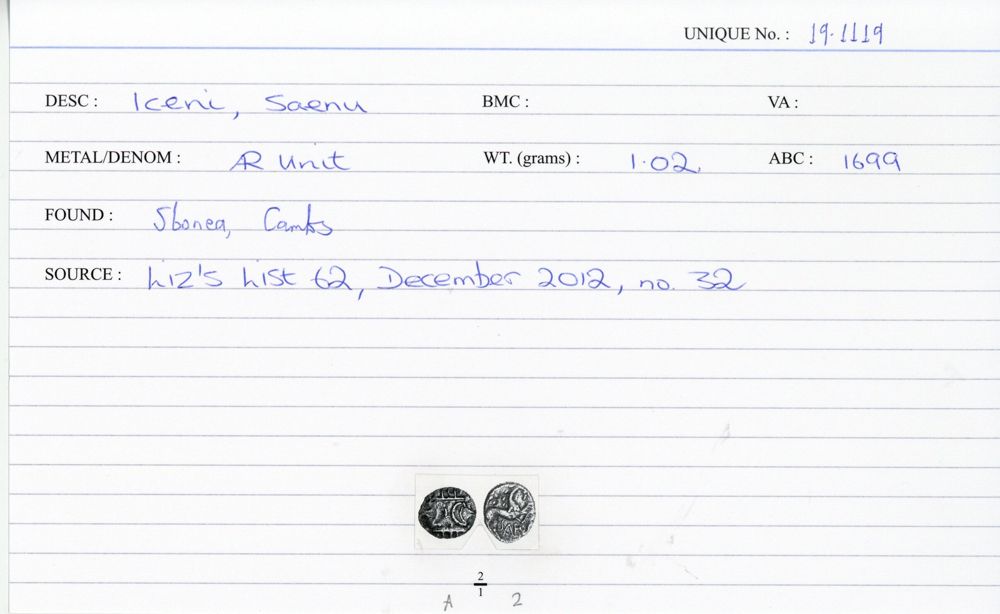 UNIQUE No. : 19.1119
DESC : Iceni, Saenu BMC : VA :
METAL/DENOM : AR Unit WT. (grams) : 1.02 ABC : 1699
FOUND : Stonea, Cambs
SOURCE : Liz's List 62, December 2012, no. 32
2
1
A 2